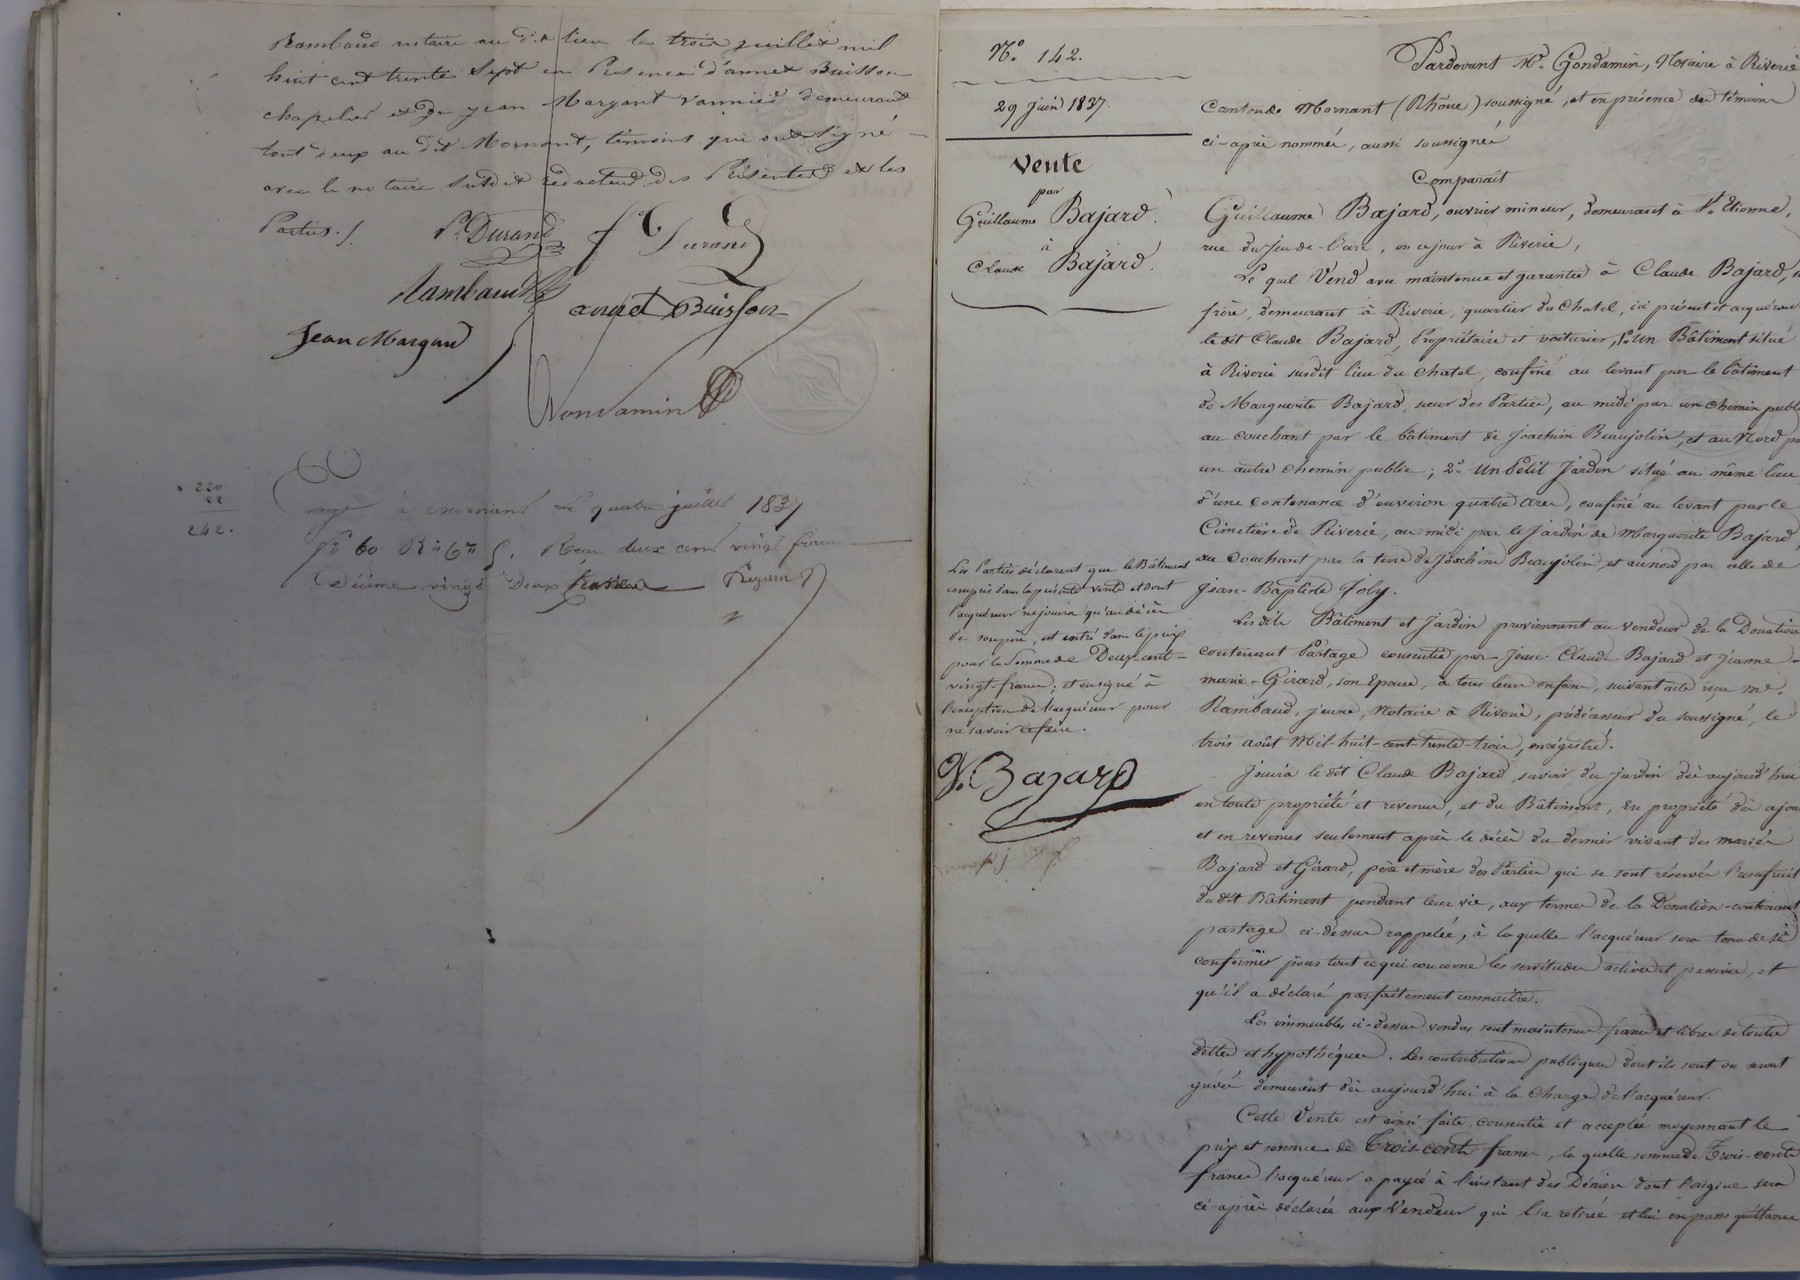 Rambaud notaire au dit lieu le trois juillet mil
huit cent trente sept en Présence d'annet Buisson
chapelier et de jean Margant vannier demeurant
tout deux au dit Mornant, témoins qui ont signé
avec le notaire susdit rédacteur des Présentes et les
Parties ./.
P. Durand
f C Durand
Rambaud
annet Buisson
Jean Margand
Gondamin
220
22
242.
à mornant Le quatre juillet 1837
f° 60 R° 6 Reçu deux cent vingt francs
Décime vingt Deux francs
N.° 142.
29 Juin 1837.
Vente
par
Guillaume Bajard.
à
Claude Bajard.
Les Parties déclarent que le Bâtiment
compris dans la présente vente et dont
l'acquéreur ne jouira qu'au décès
de son père, est entré dans le prix
pour la Somme de Deux-cent-
vingt-francs; et ont signé à
l'exception de l'acquéreur pour
ne savoir le faire.
G. Bajard
Pardevant M.e Gondamin, Notaire à Riverie
Canton de Mornant (Rhône) soussigné, et en présence des témoins
ci-après nommés, aussi soussignés
Comparait
Guillaume Bajard, ouvrier mineur, demeurant à S.t Etienne,
rue du Jeu-de-l'arc, en ce jour à Riverie,
Le quel Vend avec maintenue et garantie à Claude Bajard,
frère, demeurant à Riverie, quartier du Chatel, ici présent et acquéreur
le dit Claude Bajard, Propriétaire et voiturier, 1.° Un Bâtiment situé
à Riverie susdit lieu du Chatel, confiné au levant par le bâtiment
de Marguerite Bajard, sœur des Parties, au midi par un Chemin public
au couchant par le bâtiment de Joachim Beaujolin, et au Nord par
un autre Chemin public; 2.° Un Petit Jardin situé au même lieu
d'une contenance d'environ quatre ares, confiné au levant par le
Cimetière de Riverie, au midi par le Jardin de Marguerite Bajard,
au Couchant par la terre de Joachim Beaujolin, et au nord par celle de
Jean-Baptiste Joly.
Lesdits Bâtiment et Jardin proviennent au vendeur de la Donation
contenant Partage consentie par Jean-Claude Bajard et Jeanne-
marie-Girard, son Epouse, à tous leurs enfans, suivant acte reçu M.e
Rambaud, jeune, Notaire à Riverie, prédécesseur du soussigné, le
trois août Mil-huit-cent-trente-trois, enrégistré.
Jouira le dit Claude Bajard, savoir du jardin dès aujourd'hui
en toute propriété et revenus, et du Bâtiment, en propriété dès ajour
et en revenus seulement après le décès du dernier vivant des mariés
Bajard et Girard, père et mère des Parties qui se sont réservés l'usufruit
du dit Bâtiment pendant leur vie, aux termes de la Donation-contenant
partage ci-dessus rappelée, à laquelle l'acquéreur sera tenu de se
conformer pour tout ce qui concerne les servitudes actives et passives, et
qu'il a déclaré parfaitement connaitre.
Les immeubles ci-dessus vendus sont maintenus francs et libres de toutes
dettes et hypothéques. Les contributions publiques dont ils sont ou seront
grévés demeurent dès aujourd'hui à la Charge de l'acquéreur.
Cette Vente est ainsi faite, consentie et acceptée moyennant le
prix et somme de Trois-cents francs, laquelle somme de Trois-cents
francs l'acquéreur a payée à l'instant des Deniers dont l'origine sera
ci-après déclarée aux Vendeur qui l'a retirée et lui en passe quittance